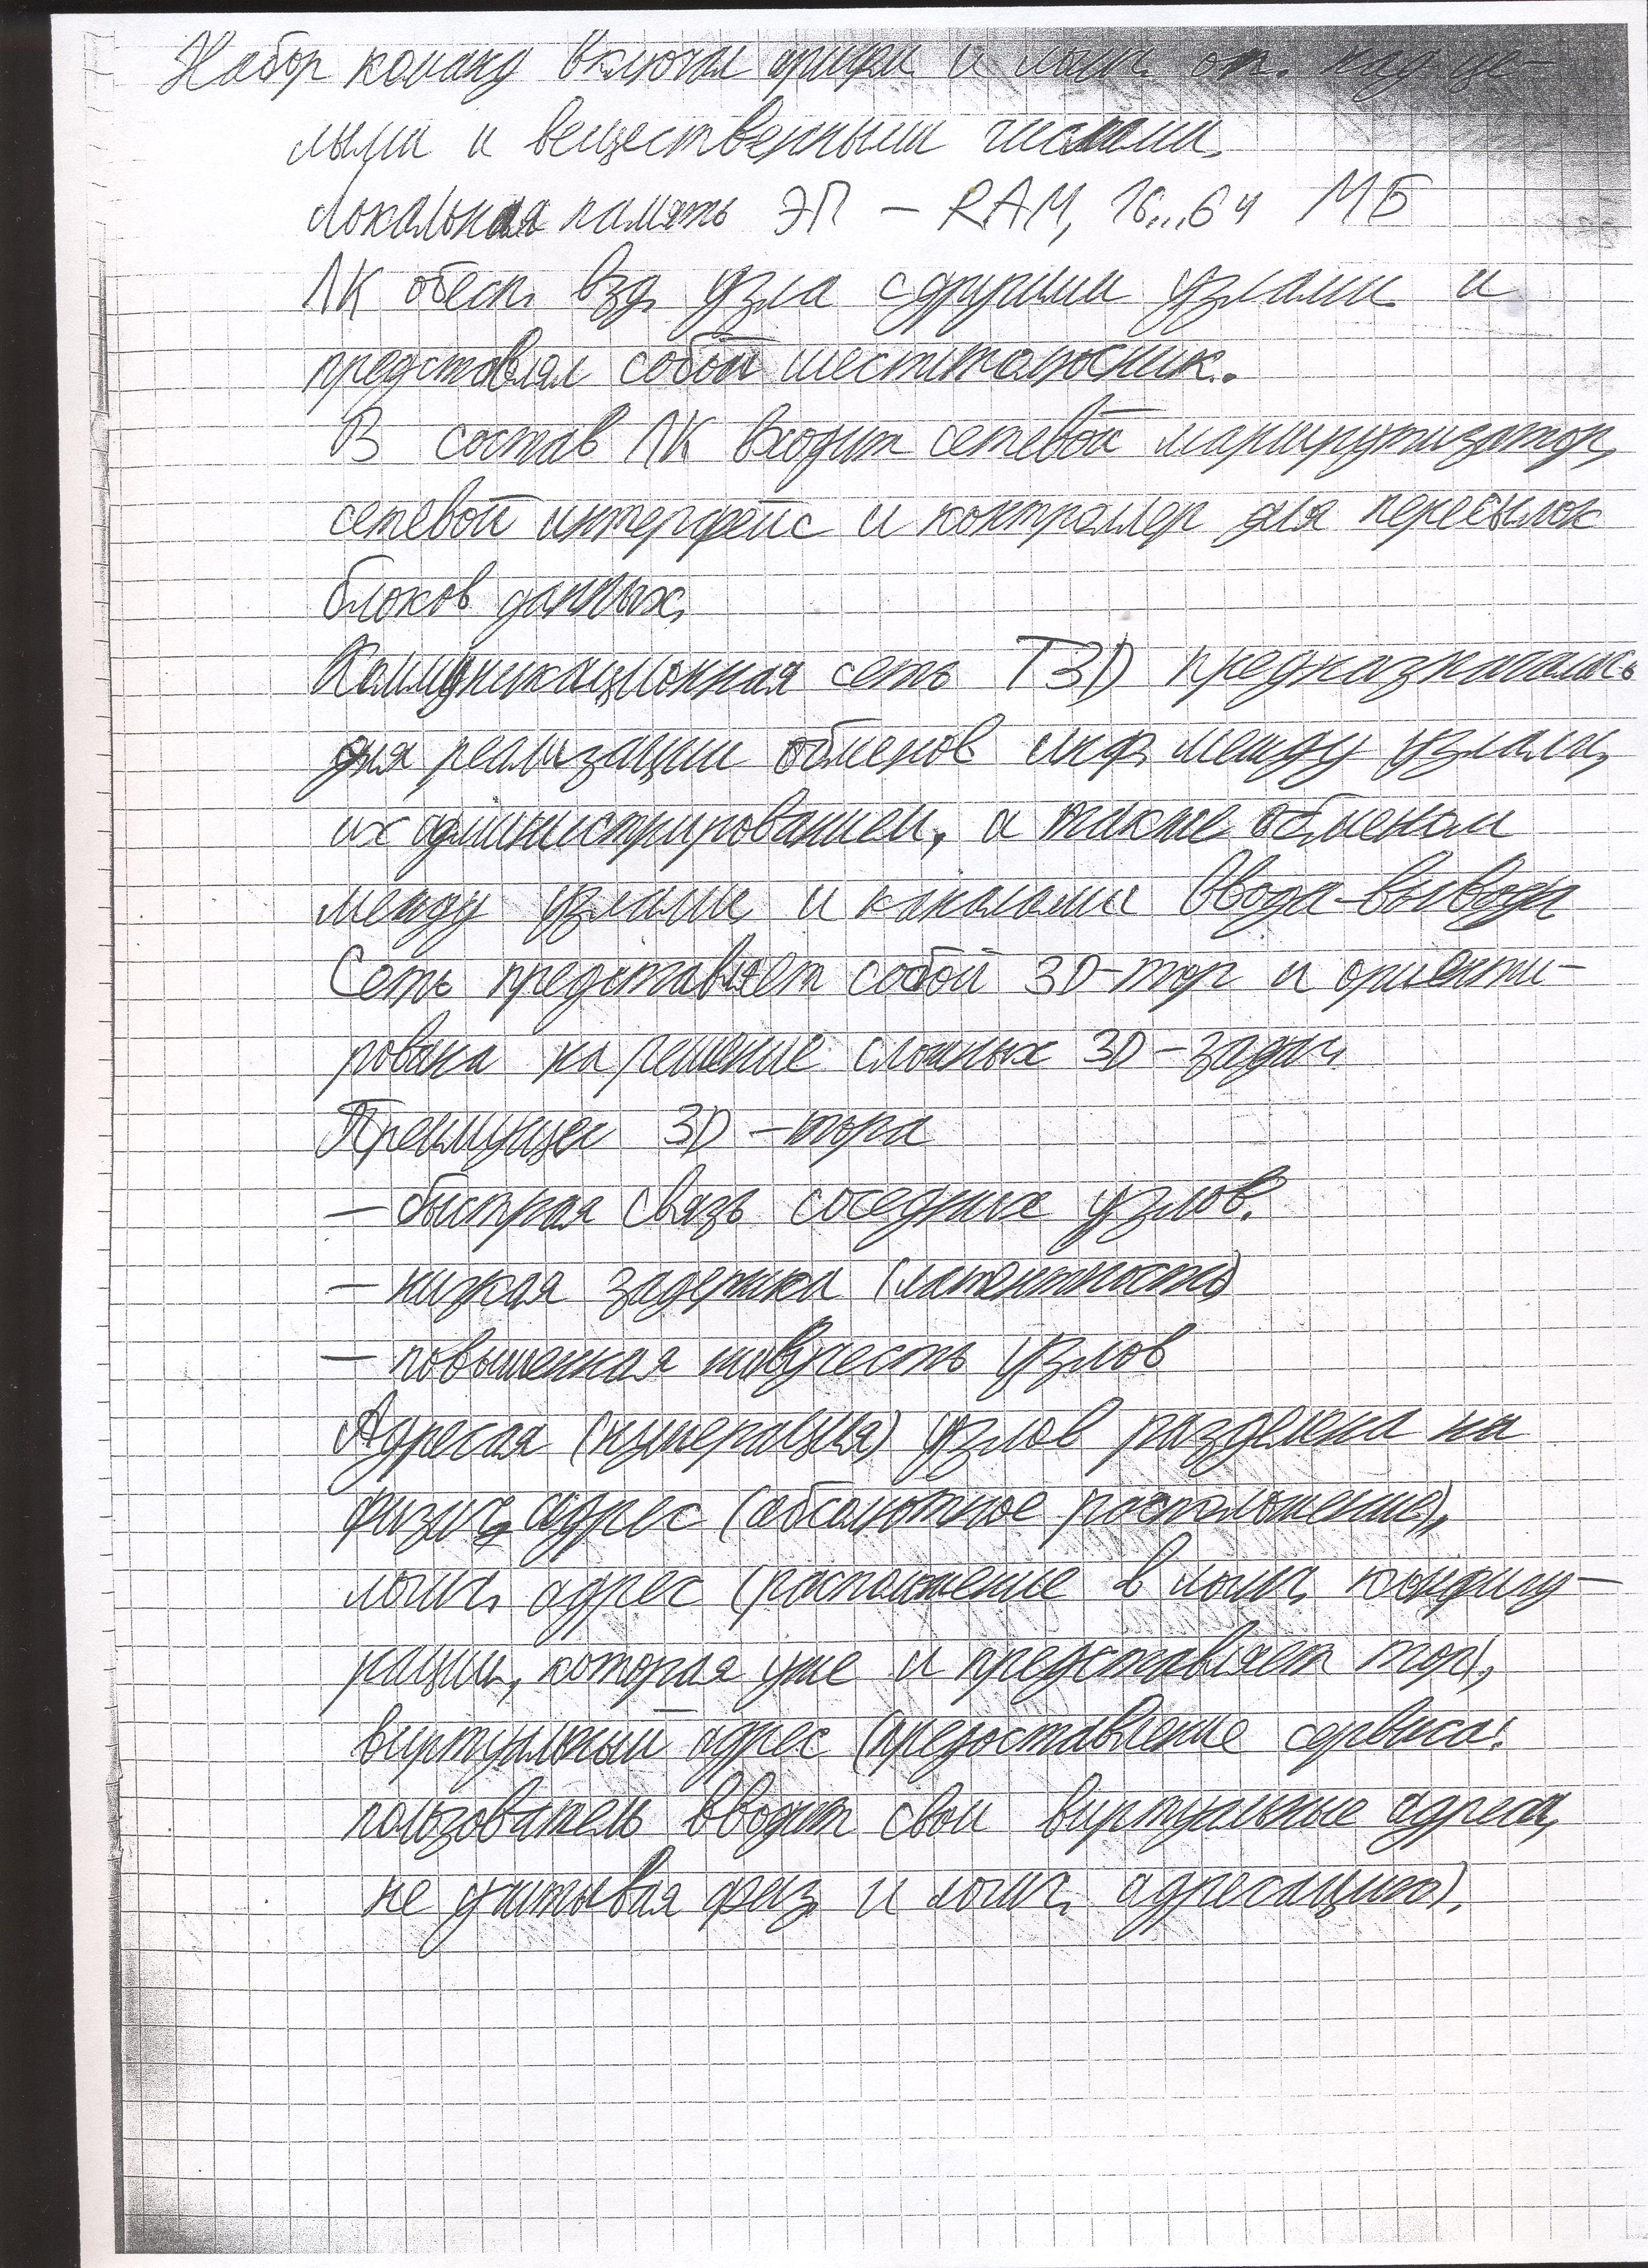 Набор команд включал арифм. и логич. оп. над це-
лыми и вещественными числами.
Локальная память ЭП – RAM, 16...64 МБ
ЛК обесп. взд. узла с другими узлами и
представлял собой шестиполюсник.
В состав ЛК входит сетевой маршрутизатор,
сетевой интерфейс и контроллер для пересылок
блоков данных.
Коммуникационная сеть T3D предназначалась
для реализации обменов инф. между узлами,
их администрированием, а также обменом
между узлами и каналами ввода-вывода
Сеть представляет собой 3D-тор и ориенти-
рована на решение сложных 3D-задач.
Преимущес 3D-тора
– быстрая связь соседних узлов.
– низкая задержка (латентность)
– повышенная живучесть узлов
Адресая (нумерация) узлов разделена на
физич. адрес (абсолютное расположение),
логич. адрес (расположение в логич. конфигу-
рации, которая уже и представляет тор),
виртуальный адрес (предоставление сервиса:
пользователь вводит свои виртуальные адреса,
не учитывая физ. и логич. адресацию).